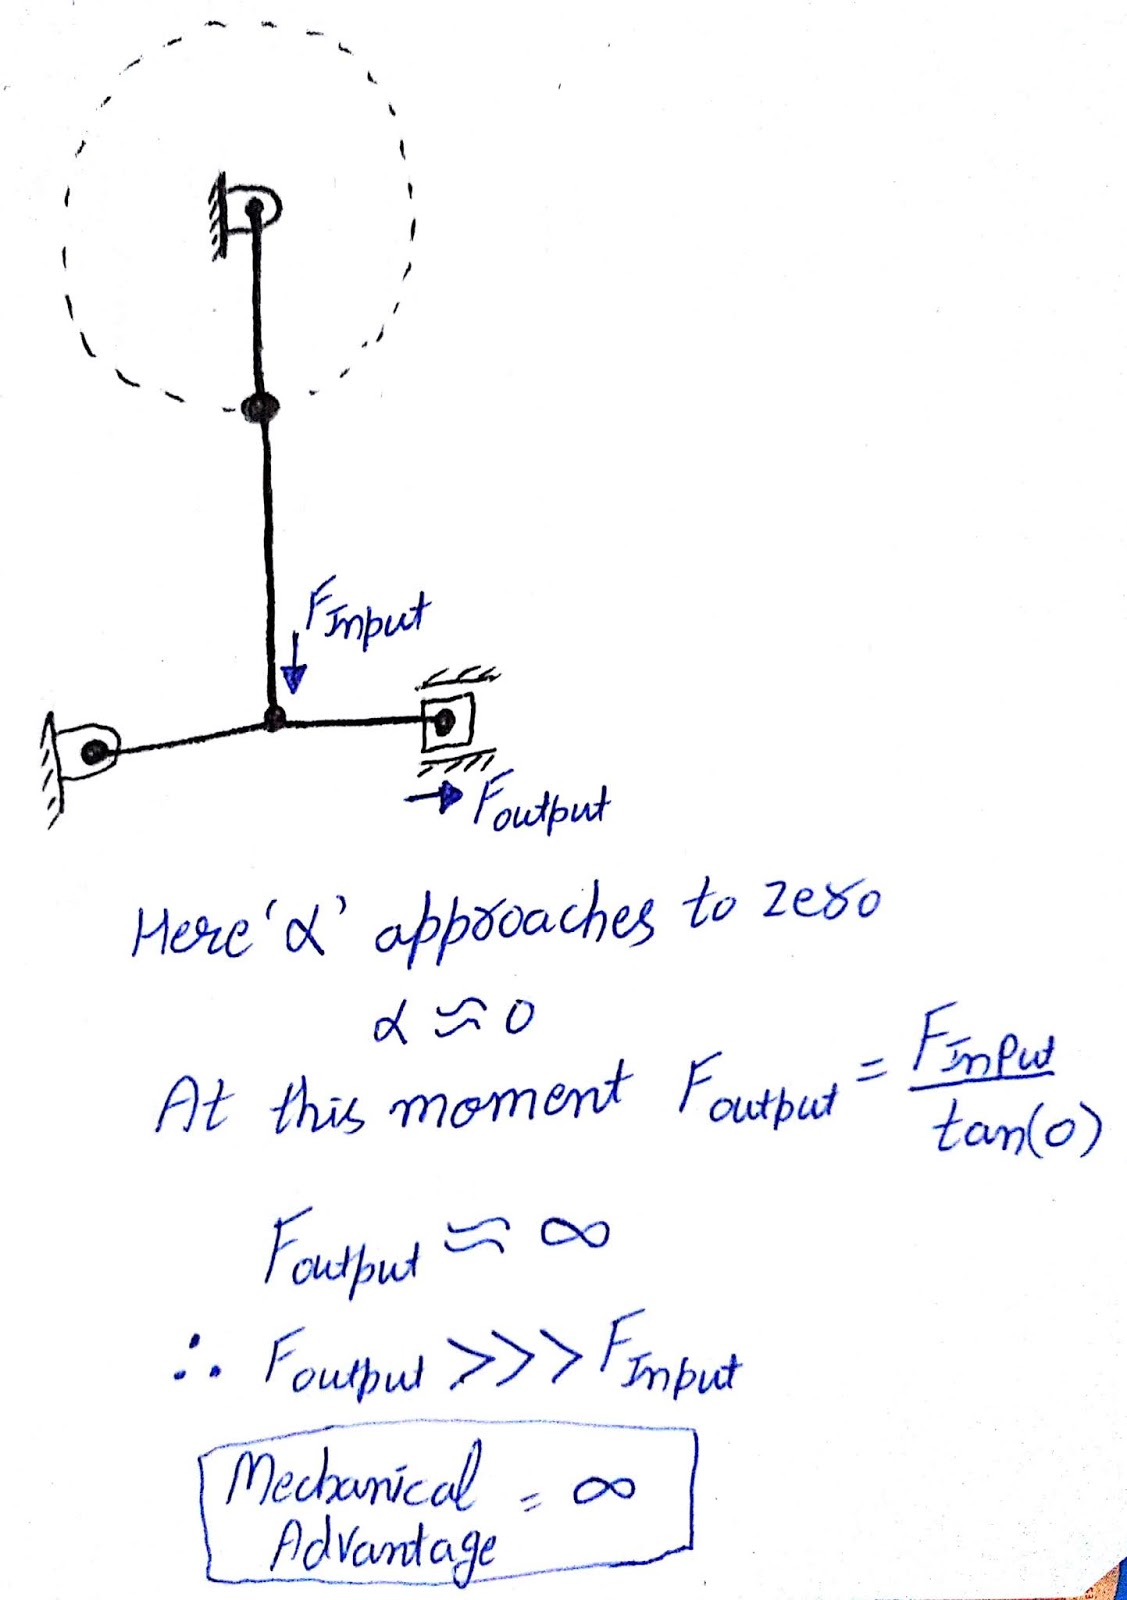 F Input
F output
Here 'α' approaches to zero
α ≈ 0
At this moment F output = F Input / tan(0)
F output ≈ ∞
∴ F output >>> F Input
Mechanical Advantage = ∞